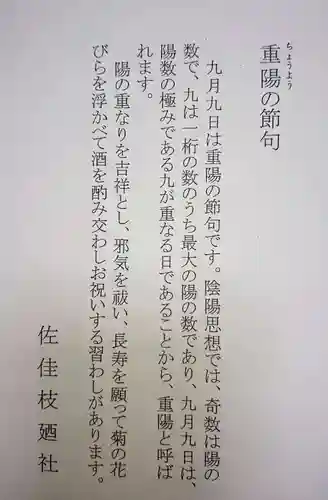 重陽の節句
ちょうよう
九月九日は重陽の節句です。陰陽思想では、奇数は陽の
数で、九は一桁の数のうち最大の陽の数であり、九月九日は、
陽数の極みである九が重なる日であることから、重陽と呼ば
れます。
陽の重なりを吉祥とし、邪気を祓い、長寿を願って菊の花
びらを浮かべて酒を酌み交わしお祝いする習わしがあります。
佐佳枝廼社